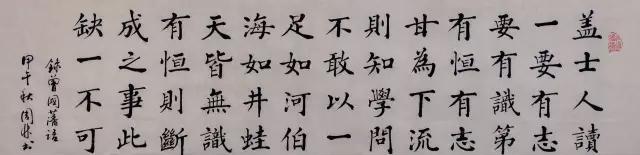 盖士人讀
一要有志
要有識第
有恒有志
甘為下流
則知學問
不敢以一
足如河伯
海如井蛙
天皆無識
有恒則斷
成之事此
缺一不可
錄曾國藩語
甲午秋周书